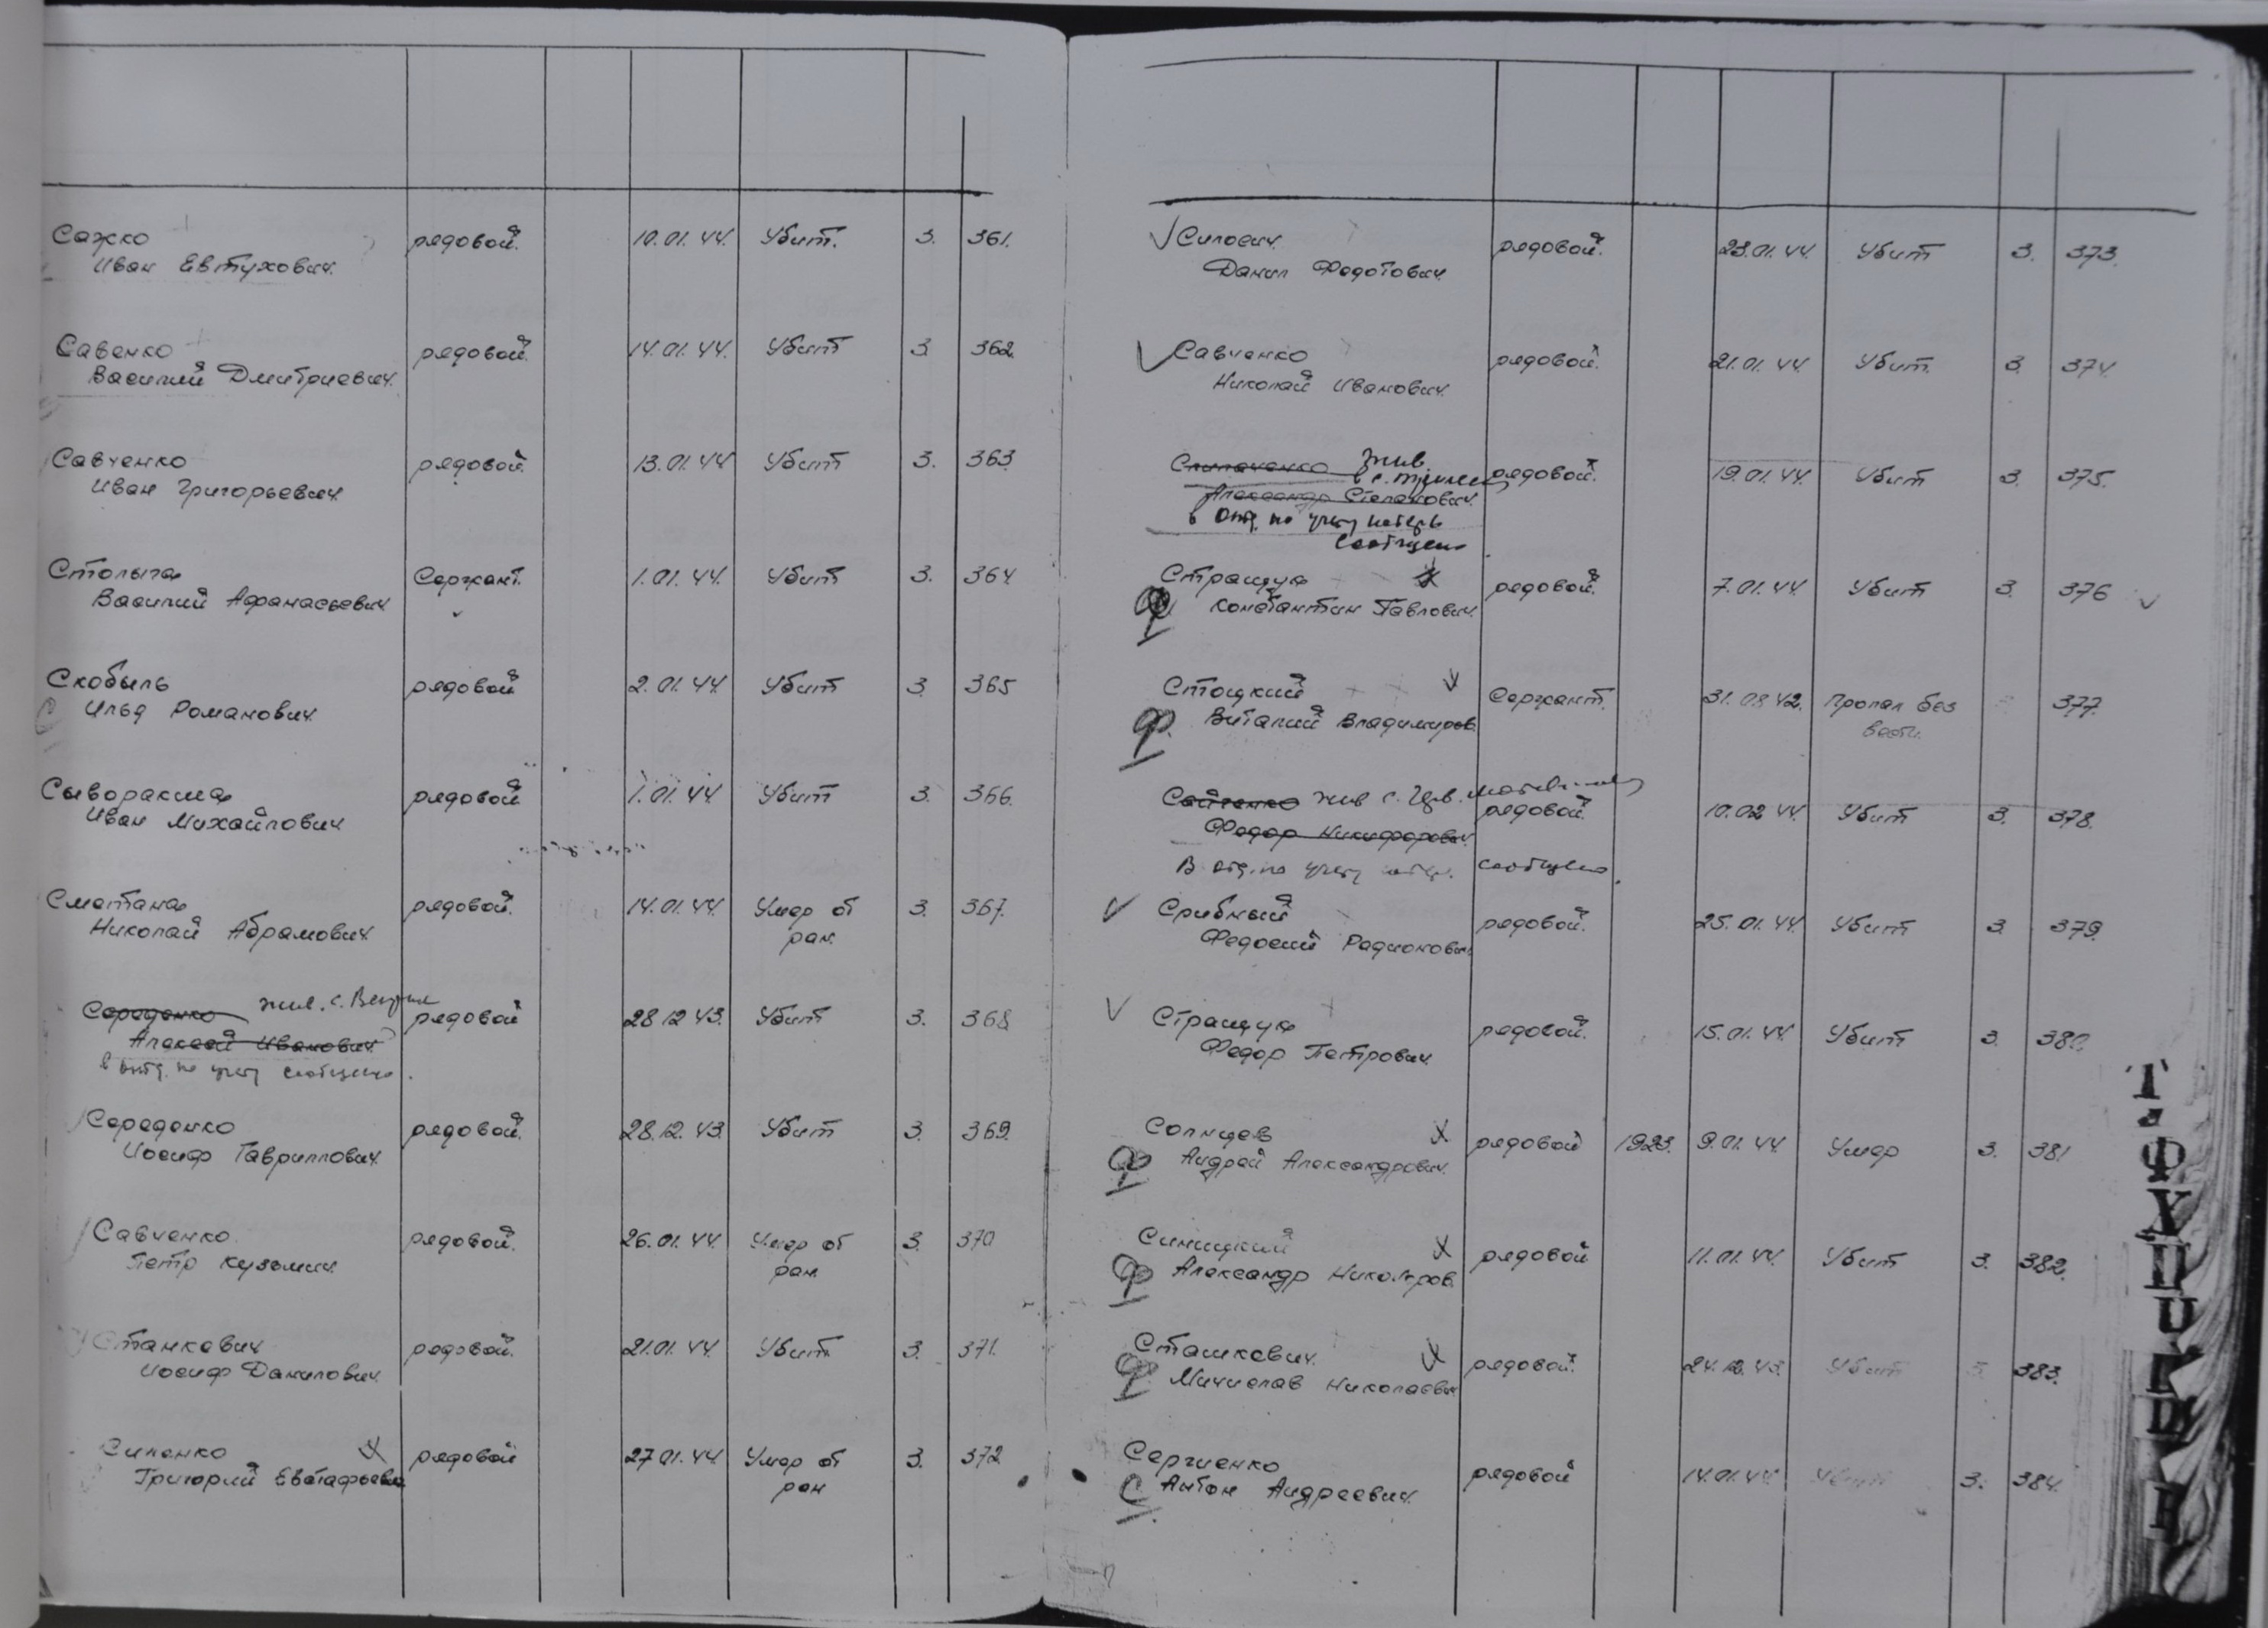 Сажко рядовой. 10.01.44. Убит. 3. 361.
Иван Евтухович.
Савенко рядовой. 14.01.44. Убит 3. 362.
Василий Дмитриевич.
Савченко рядовой. 13.01.44 Убит 3. 363.
Иван Григорьевич.
Столыга Сержант. 1.01.44. Убит 3. 364
Василий Афанасьевич
Скобыль рядовой 2.01.44. Убит 3. 365
Илья Романович.
Сыворакша рядовой 1.01.44. Убит 3. 366.
Иван Михайлович
Сметана рядовой. 14.01.44. Умер от 3. 367.
Николай Абрамович ран.
Середенко жив. с. рядовой 28.12.43. Убит 3. 368
Алексей Иванович
в отд. по учету сообщено.
Середенко рядовой. 28.12.43. Убит 3. 369.
Иосиф Гаврилович
Савченко рядовой. 26.01.44. Умер от 3. 370
Петр Кузьмич. ран.
Станкевич рядовой. 21.01.44. Убит. 3. 371.
Иосиф Данилович
Силенко рядовой 27.01.44. Умер от 3. 372
Григорий Евстафьевич ран
Силосич рядовой. 23.01.44. Убит 3. 373.
Данил Федотович.
Савченко рядовой. 21.01.44. Убит. 3. 374.
Николай Иванович.
жив рядовой. 19.01.44. Убит 3. 375.
в с.
Александр Степанович
в отд. по учету потерь
сообщено.
Стращук рядовой. 7.01.44. Убит 3. 376
Константин Павлович.
Стоцкий Сержант. 31.08.42. Пропал без 377.
Виталий Владимиров. вести.
Сайченко жив с. Чрв. рядовой. 10.02.44. Убит 3. 378.
Федор Никифорович
В отд. по учету сообщено.
Срибный рядовой. 25.01.44. Убит 3. 379.
Федосий Радионович
Стращук рядовой. 15.01.44. Убит 3. 380.
Федор Петрович.
Солнцев рядовой 1923. 9.01.44. Умер 3. 381
Андрей Александрович.
Синицкий рядовой 11.01.44. Убит 3. 382.
Александр
Сташкевич. рядовой. 24.12.43. Убит 3. 383.
Мичислав Николаевич
Сергиенко рядовой 14.01.44. Убит 3. 384.
Антон Андреевич.
Т
Ф
Х